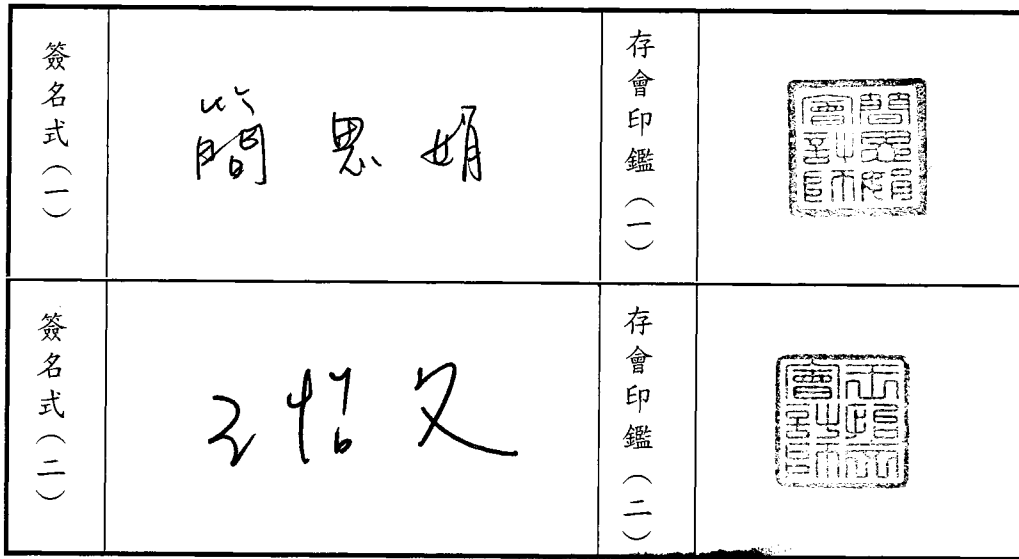 簽名式（一）
簡思娟
存會印鑑（一）
簡思娟會計師
簽名式（二）
王怡文
存會印鑑（二）
王怡文會計師